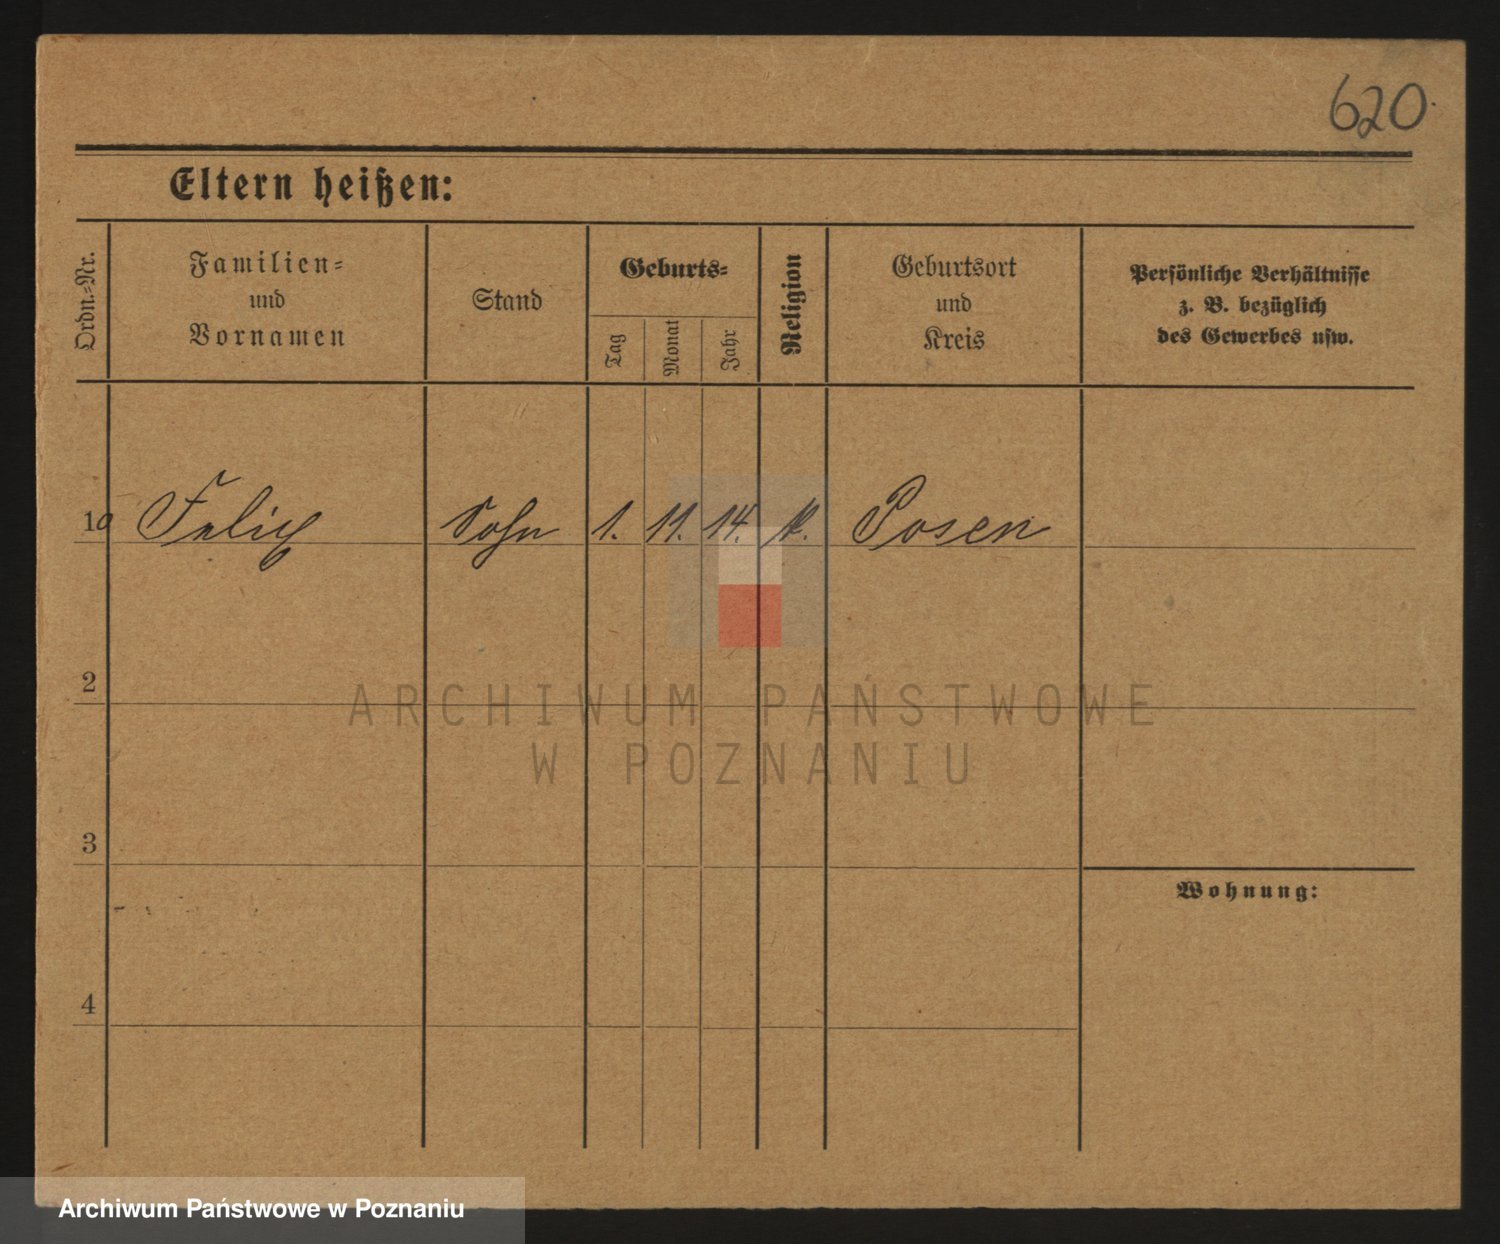 620.
Eltern heißen:
Ordn.-Nr.
Familien-
und
Vornamen
Stand
Geburts-
Tag
Monat
Jahr
Religion
Geburtsort
und
Kreis
Persönliche Verhältnisse
z. B. bezüglich
des Gewerbes usw.
1a Felix Sohn 1. 11. 14. k. Posen
2
ARCHIWUM PAŃSTWOWE
W POZNANIU
3
Wohnung:
4
Archiwum Państwowe w Poznaniu